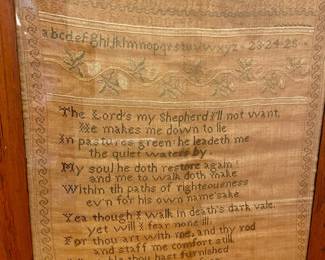 abcdefghijklmnopqrstuvwxyz 23·24·25
The Lord's my Shepherd I'll not want,
He makes me down to lie
In pastures green: he leadeth me
the quiet waters by
My soul he doth restore again:
and me to walk doth make
Within th paths of righteousness
ev'n for his own name sake
Yea though I walk in death's dark vale,
yet will I fear none ill:
For thou art with me, and thy rod
and staff me comfort still
thou hast furnished